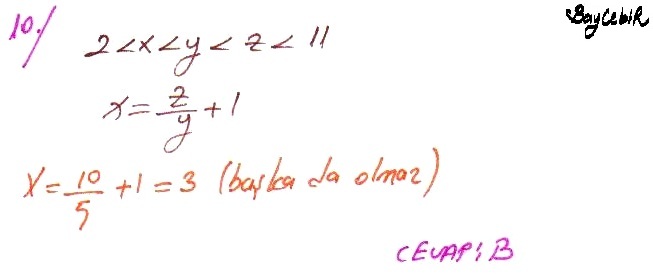 BayCebiR
10./ 2<x<y<z<11
x=z/y+1
x=10/5+1=3 (başka da olmaz)
CEVAP: B